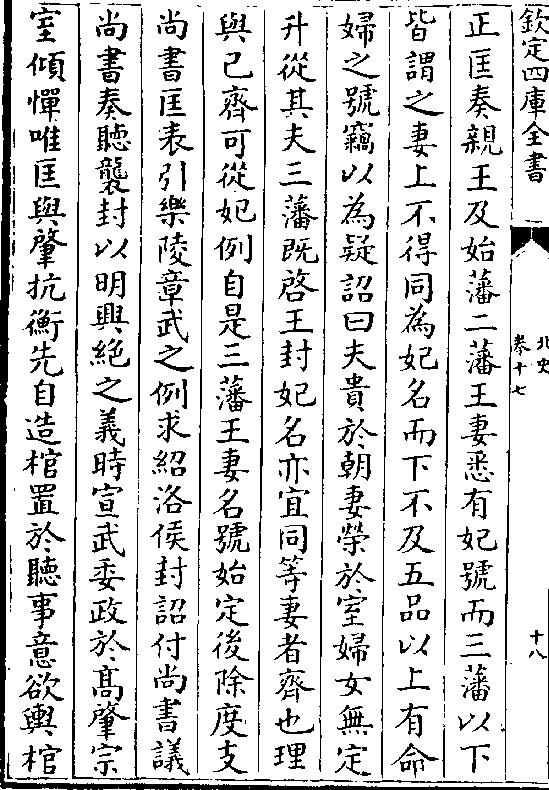 欽定四庫全書
北史
卷十七
十八
正匡奏親王及始藩二藩王妻悉有妃號而三藩以下
皆謂之妻上不得同為妃名而下不及五品以上有命
婦之號竊以為疑詔曰夫貴於朝妻榮於室婦女無定
升從其夫三藩既啓王封妃名亦宜同等妻者齊也理
與己齊可從妃例自是三藩王妻名號始定後除度支
尚書匡表引樂陵章武之例求紹洛侯封詔付尚書議
尚書奏聽襲封以明興絶之義時宣武委政於髙肇宗
室傾憚唯匡與肇抗衡先自造棺置於聽事意欲輿棺